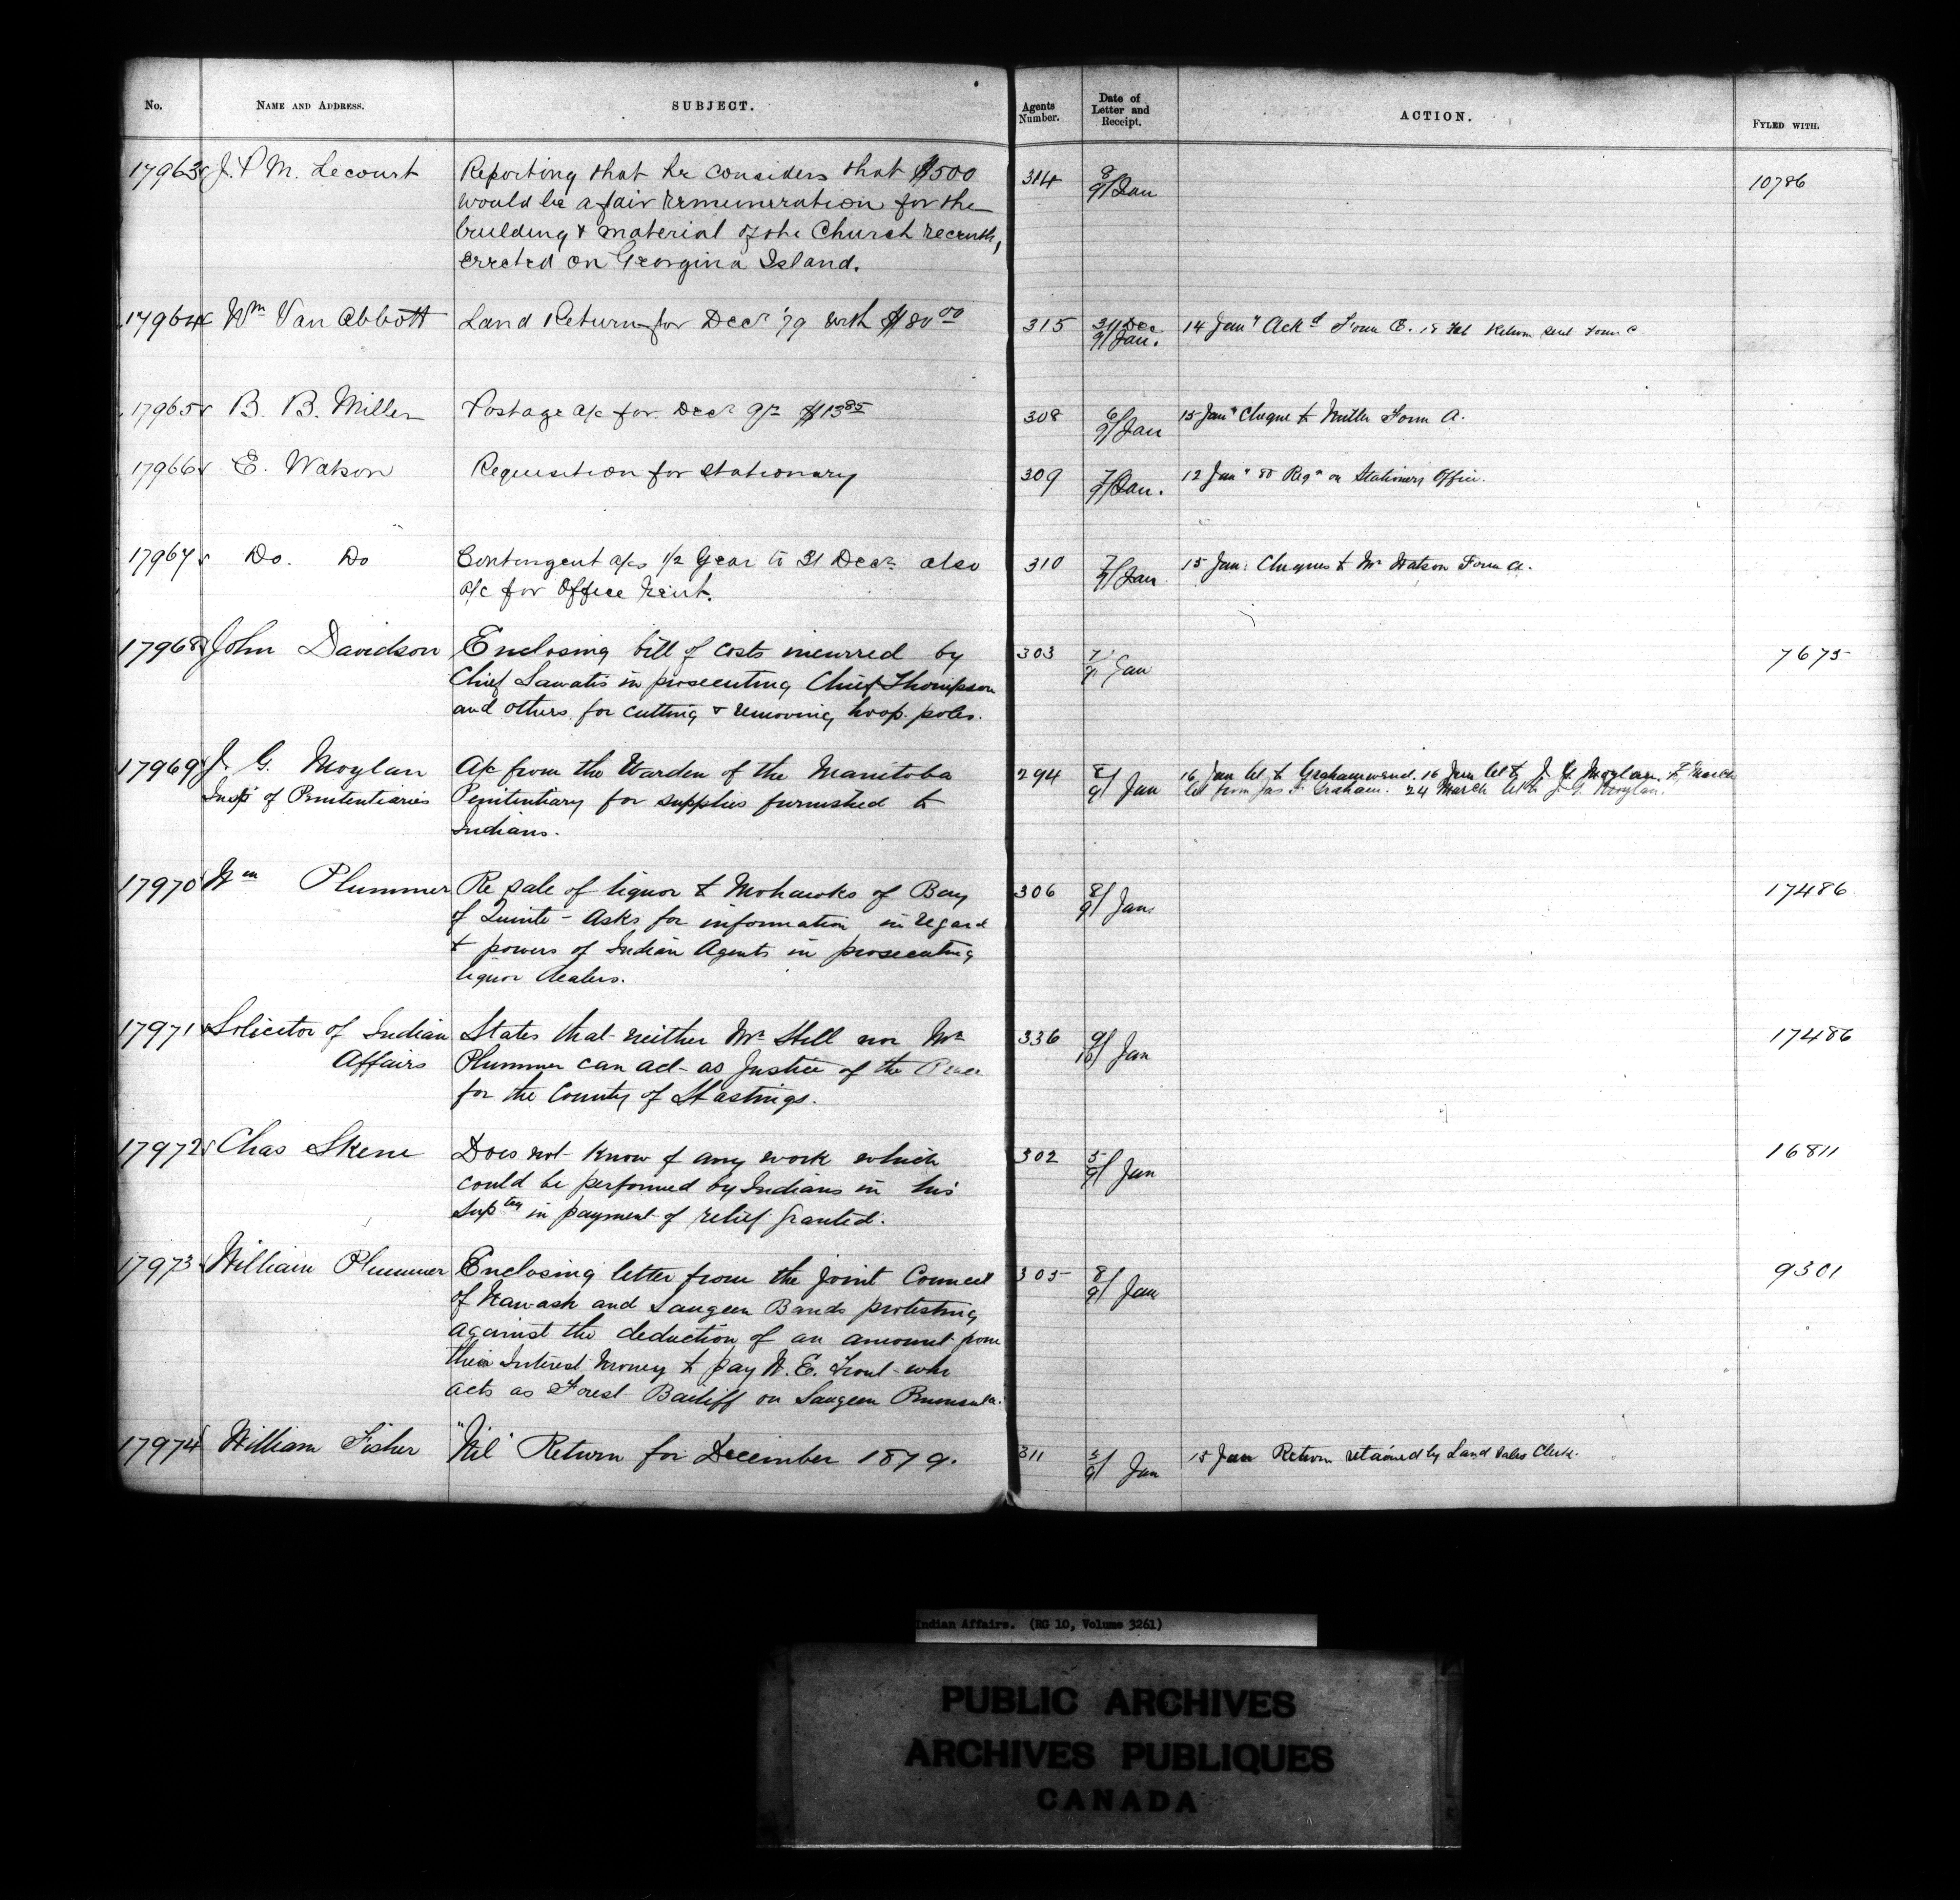 No. NAME AND ADDRESS. SUBJECT. Agents Number. Date of Letter and Receipt. ACTION. FYLED WITH.
17963 J. P. M. Lecourt Reporting that he considers that $500 314 8/9/Jan 10786
would be a fair remuneration for the
building & material of the Church recently
erected on Georgina Island.
17964 Wm Van Abbott Land Return for Decr '79 with $80 00 315 31/Dec 9/Jan. 14 Jany Ackd Form E. 18 Feb Return sent Form C
17965 B. B. Miller Postage a/c for Decr qr $13 85 308 6/9/Jan 15 Jany Cheque to Miller Form A.
17966 E. Watson Requisition for stationary 309 7/9/Jan. 12 Jany 80 Reqn on Stationery Office.
17967 Do. Do Contingent a/cs 1/2 Year to 31 Decr also 310 7/9/Jan 15 Jan: Cheques to Mr Watson Form A.
a/c for Office Rent.
17968 John Davidson Enclosing bill of costs incurred by 303 7/9/ Jan 7675
Chief Sawatis in prosecuting Chief Thompson
and others for cutting & removing hoop poles.
17969 J. G. Moylan A/c from the Warden of the Manitoba 294 8/9/ Jan 16 Jan let to Graham 16 Jan let to J. G. Moylan. March
Insp of Penitentiaries Penitentiary for supplies furnished to let from Jas F. Graham. 24 March let to J. G. Moylan.
Indians.
17970 Wm Plummer Re sale of liquor to Mohawks of Bay 306 8/9/ Jan 17486
of Quinte - Asks for information in regard
to powers of Indian Agents in prosecuting
liquor dealers.
17971 Solicitor of Indian States that neither Mr Hill nor Mr 336 9/10/ Jan 17486
Affairs Plummer can act as Justice of the Peace
for the County of Hastings.
17972 Chas Skene Does not know of any work which 302 5/9/ Jan 16811
could be performed by Indians in his
Suptcy in payment of relief granted.
17973 William Plummer Enclosing letter from the Joint Council 305 8/9/ Jan 9301
of Nawash and Saugeen Bands protesting
against the deduction of an amount from
their Interest Money to pay W. E. Trout who
acts as Forest Bailiff on Saugeen Peninsula.
17974 William Fisher "Nil" Return for December 1879. 311 5/9/ Jan 15 Jan Return retained by Land Sales Clerk.
Indian Affairs. (RG 10, Volume 3261)
PUBLIC ARCHIVES
ARCHIVES PUBLIQUES
CANADA